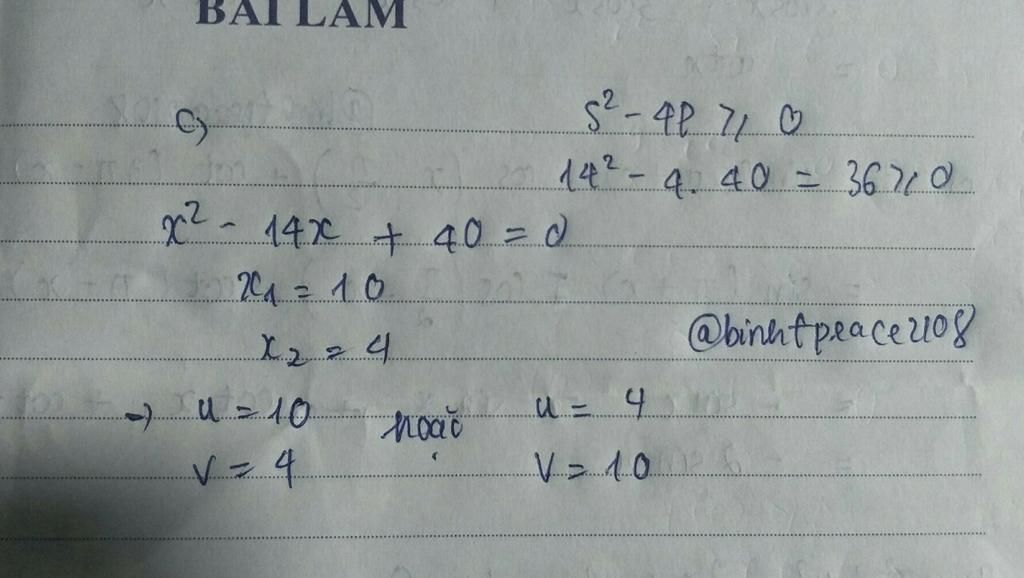 BÀI LÀM
c) S² - 4P ≥ 0
14² - 4. 40 = 36 ≥ 0
x² - 14x + 40 = 0
x₁ = 10
x₂ = 4
@binhtpeace2108
=> u = 10 hoặc u = 4
v = 4 v = 10